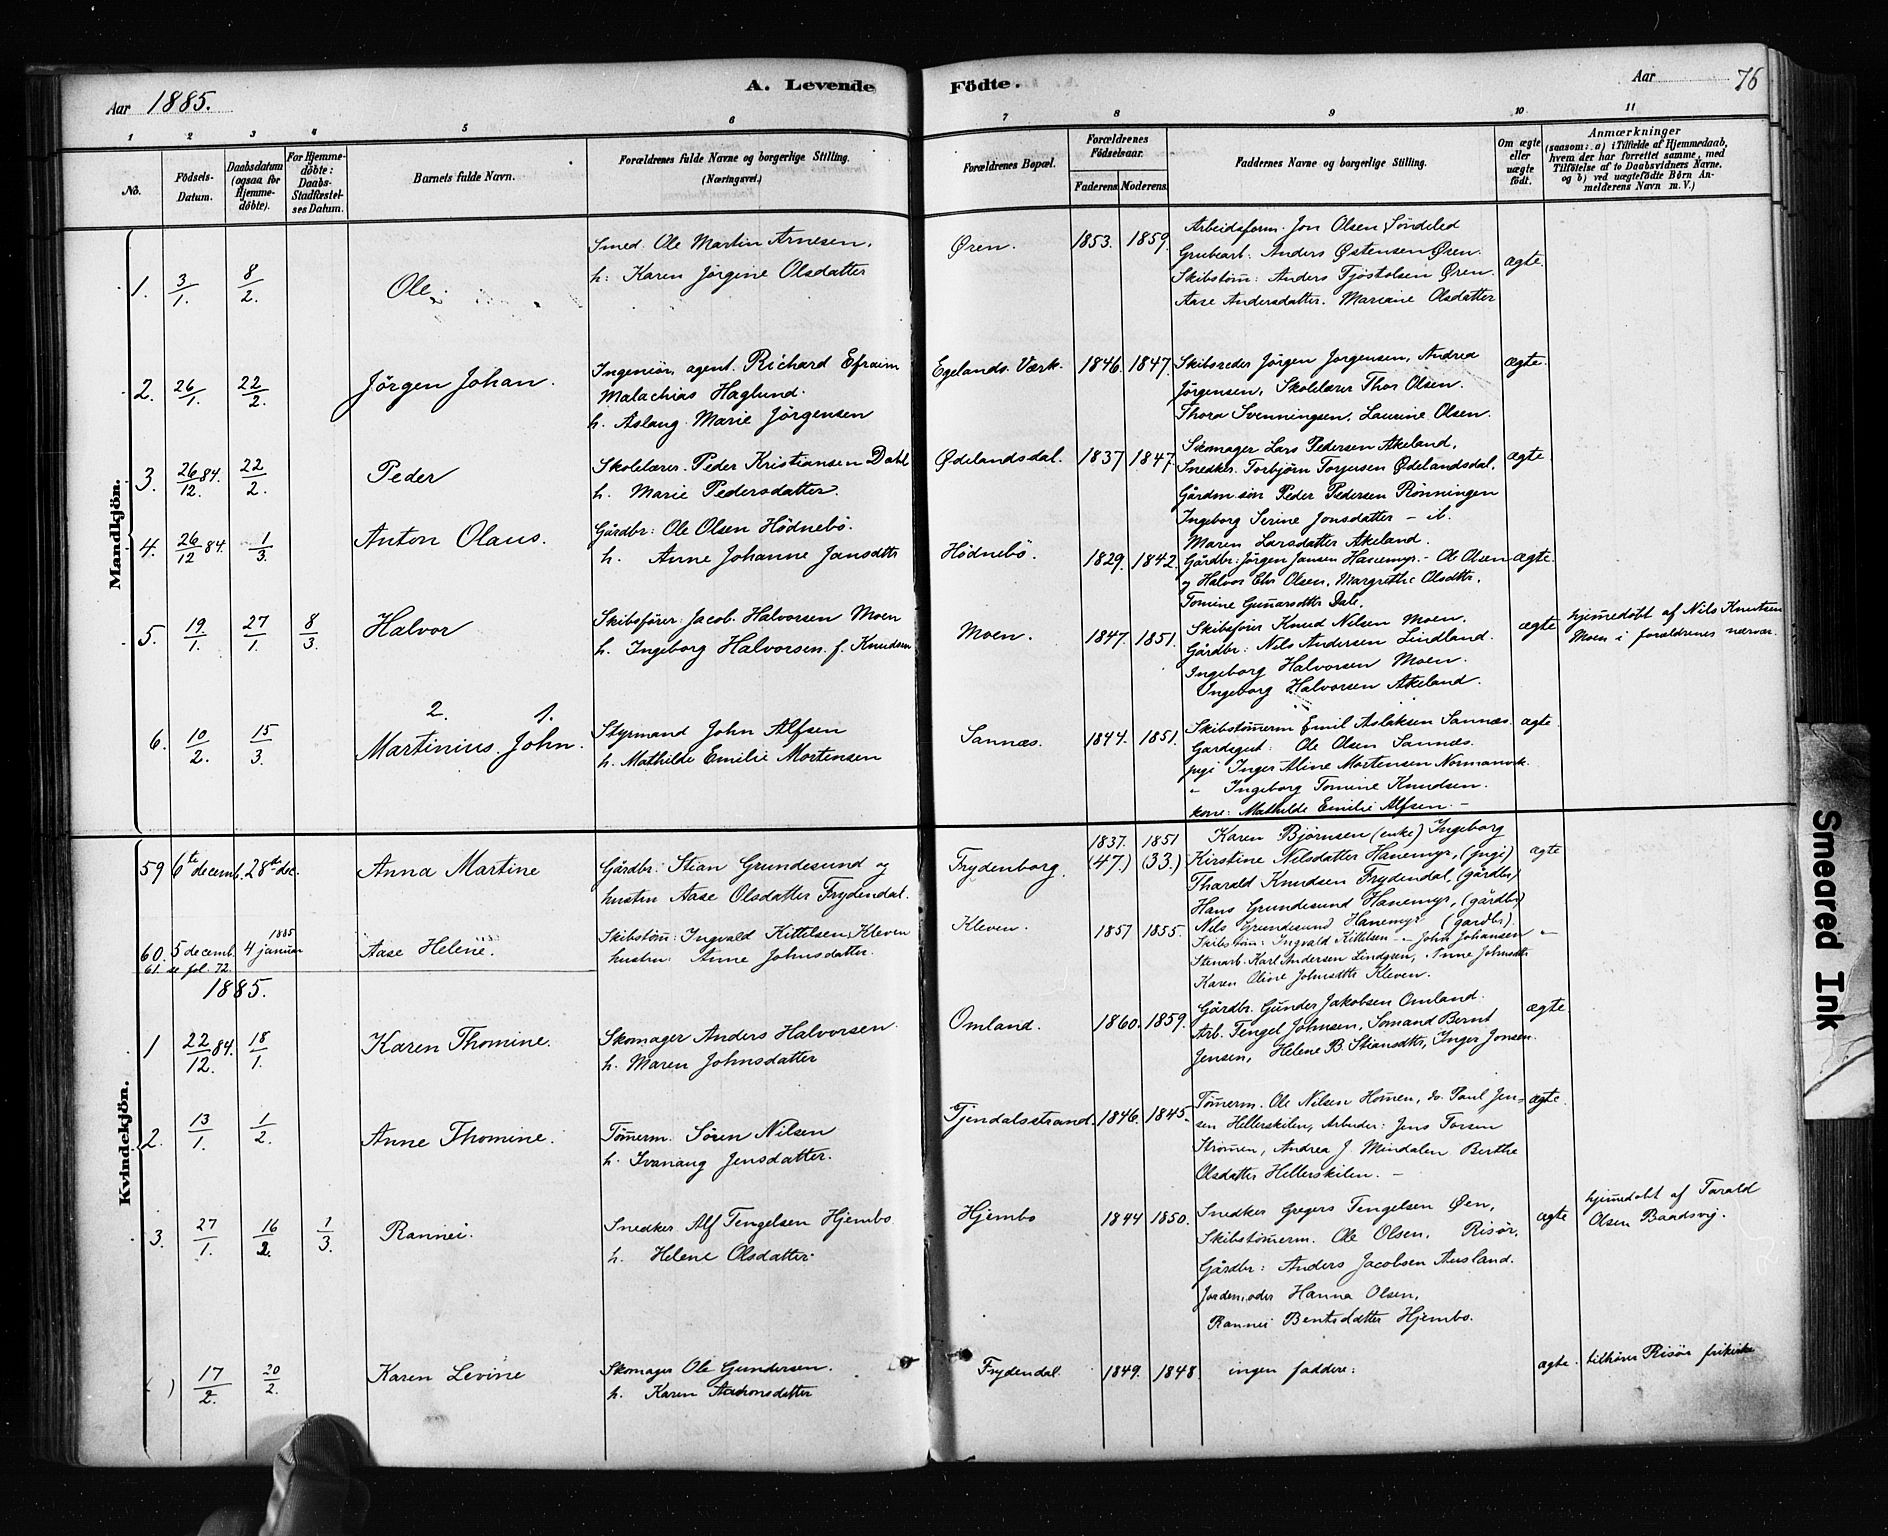 Aar 1885.
A. Levende
Födte.
Aar
76
1 2 3 4 5 6 7 8 9 10 11
No.
Födsels-
Datum.
Daabsdatum
(ogsaa for
Hjemme-
döbte).
For Hjemme-
döbte:
Daabs-
Stadfæstel-
ses Datum.
Barnets fulde Navn.
Forældrenes fulde Navne og borgerlige Stilling.
(Næringsvei.)
Forældrenes Bopæl.
Forældrenes
Födselsaar.
Faderens. Moderens.
Faddernes Navne og borgerlige Stilling.
Om ægte
eller
uægte
födt.
Anmærkninger
(saasom: a) i Tilfælde af Hjemmedaab,
hvem der har forrettet samme, med
Tilföielse af to Daabsvidners Navne.
og b) ved uægtefödte Börn An-
melderens Navn m. V.)
Mandkjön.
1. 3/1. 8/2. Ole
Smed. Ole Martin Arnesen.
h: Karen Jørgine Olsdatter
Øren. 1853. 1859.
Arbeidsform. Jon Olsen Søndeled
Grubearb: Anders Østensen Øren.
Skibstøm: Anders Tjøstolsen Øren.
Aase Andersdatter. Mariane Olsdatter
ægte.
2. 26/1. 22/2. Jörgen Johan.
Ingeniör, agent. Richard Efraim
Malachias Haglund.
h. Aslaug Marie Jörgensen
Egelands Værk. 1846. 1847.
Skibsreder Jörgen Jorgensen, Andrea
Jörgensen, Skolelærer Thor Olsen.
Thora Svenningsen, Laurine Olsen.
ægte.
3. 26/12. 84. 22/2. Peder
Skolelærer. Peder Kristiansen Dahl
h. Marie Pedersdatter.
Ødelandsdal. 1837 1847.
Skomager Lars Pedersen Akeland.
Snedker. Torbjörn Torjussen Ødelandsdal.
Gårdm. sön Peder Pedersen Rönningen
Ingeborg Serine Jonsdatter – ib.
Maren Larsdatter Akeland.
ægte
4. 26/12 84. 1/3. Anton Olaus.
Gårdbr: Ole Olsen Hödnebö.
h. Anne Johanne Jansdtr
Hödnebö. 1829. 1842.
Gårdbr: Jörgen Jansen Hanemyr. – Ole Olsen
og Halvor Olsen, Margrethe Olsdtr.
Tomine Gunarsdtr Dale.
ægte.
5. 19/1. 27/1. 8/3. Halvor
Skibsförer. Jacob. Halvorsen Moen
h. Ingeborg Halvorsen. f. Knudsen
Moen. 1847. 1851.
Skibsförer Knud Nilsen Moen.
Gårdbr: Nils Andersen Lindland.
Ingeborg Halvorsen Moen.
Ingeborg Halvorsen Akeland.
ægte
hjemedöbt af Nils Knutsen
Moen i foraldrenes nærvær.
2. 1.
6. 10/2. 15/3. Martinius. John.
Styrmand John Alfsen
h. Mathilde Emilie Mortensen
Sannæs. 1844. 1851.
Skibstömerm Emil Aslaksen Sannæs.
Gardsgut: Ole Olsen Sannæs.
pige Inger Aline Mortensen Normanvik.
" Ingeborg Tomine Knudsen.
kone: Mathilde Emilie Alfsen. –
ægte.
Kvindekjön.
59 6te decemb. 28de dec. Anna Martine
Gårdbr. Stian Grundesund og
hustru Aase Olsdatter Frydendal.
Frydenborg. 1837. (47.) 1851 (33.)
Karen Björnsen (enke) Ingeborg
Kirstine Nilsdatter Hanemyr, (pige)
Tharald Knudsen Frydendal, (gårdbr)
Hans Grundesund Hanemyr, (gårdbr)
Nils Grundesund Hanemyr (gardbr).
ægte
60. 5 decemb. 4 januar 1885 Aase Helene.
Skibstöm: Ingvald Kittelsen Kleven
hustru: Anne Johnsdatter.
Kleven. 1851 1855.
Skibstöm: Ingvald Kittelsen – John Johansen
Stenarb. Karl Andersen Lindgren, Anne Johnsdtr
Karen Oline Johnsdtr Kleven.
"
61 se fol. 72.
1885.
1 22/12. 84. 18/1. Karen Thomine.
Skomager Anders Halvorsen.
h. Maren Johnsdatter
Omland. 1860. 1859.
Gårdbr. Gunder Jakobsen Omland.
Arb. Tengel Johnsen, Sömand Bernt
Jensen, Helene B. Stiansdtr, Inger Jonsen.
ægte
2. 13/1. 1/2. Anne Thomine.
Tömerm. Sören Nilsen
h. Ivanaug Jensdatter.
Tjendalsstrand. 1846. 1845.
Tömerm. Ole Nilsen Homen, do. Paul Jen-
sen Hellerskilen, Arbeider: Jens Torsen
Strömen, Andrea J Mindalen Berthe
Olsdatter Hellerskilen. –
ægte.
3. 27/1. 16/2. 1/3. Rannei.
Snedker Alf Tengelsen Hjembo
h. Helene Olsdatter.
Hjembo 1844 1850.
Snedker Gregers Tengelsen Øen,
Skibstömerm. Ole Olsen, Risör,
Gårdbr: Anders Jacobsen Ausland.
Jordemoder Hanna Olsen,
Rannei Bentsdatter Hjembo.
ægte
hjemedobt af Tarald
Olsen Baadsvij.
( ) 17/2. 20/2. Karen Levine
Skomager Ole Gundersen.
h. Karen Aachonsdatter
Frydendal. 1849. 1848
ingen faddere.
ægte. tilhörer Risör frikirke
Smeared Ink